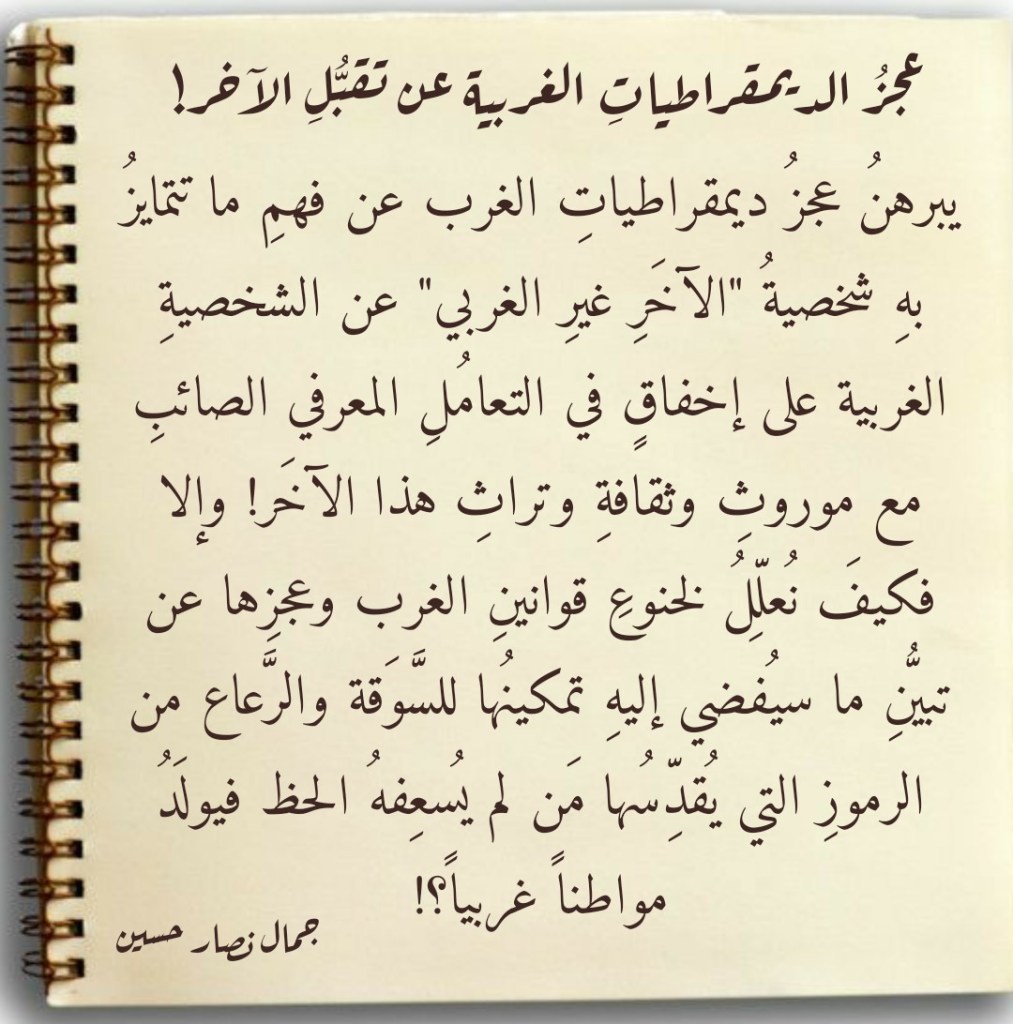 عجزُ الديمقراطياتِ الغربية عن تقبُّلِ الآخر!
يبرهنُ عجزُ ديمقراطياتِ الغرب عن فهمِ ما تتمايزُ
بهِ شخصيةُ "الآخَرِ غيرِ الغربي" عن الشخصيةِ
الغربية على إخفاقٍ في التعامُلِ المعرفي الصائبِ
مع موروثِ وثقافةِ وتراثِ هذا الآخَر! وإلا
فكيفَ نُعلِّلُ لخنوعِ قوانينِ الغرب وعجزِها عن
تبيُّنِ ما سيُفضي إليهِ تمكينُها للسَّوَقة والرَّعاع من
الرموزِ التي يُقدِّسُها مَن لم يُسعِفهُ الحظ فيولَدُ
مواطناً غربياً؟!
جمال نصار حسين